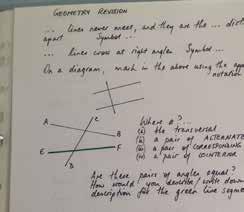 GEOMETRY REVISION
... lines never meet, and they are the ... dist
apart Symbol...
... lines cross at right angles Symbol...
On a diagram, mark in the above using the app
notation
A
C
B
E
F
D
Where is?...
(i) the transversal
(ii) a pair of ALTERNATE
(iii) a pair of CORRESPONDING
(iv) a pair of COINTERIOR
Are these pairs of angles equal?
How would you describe / write down
description for the green line symb